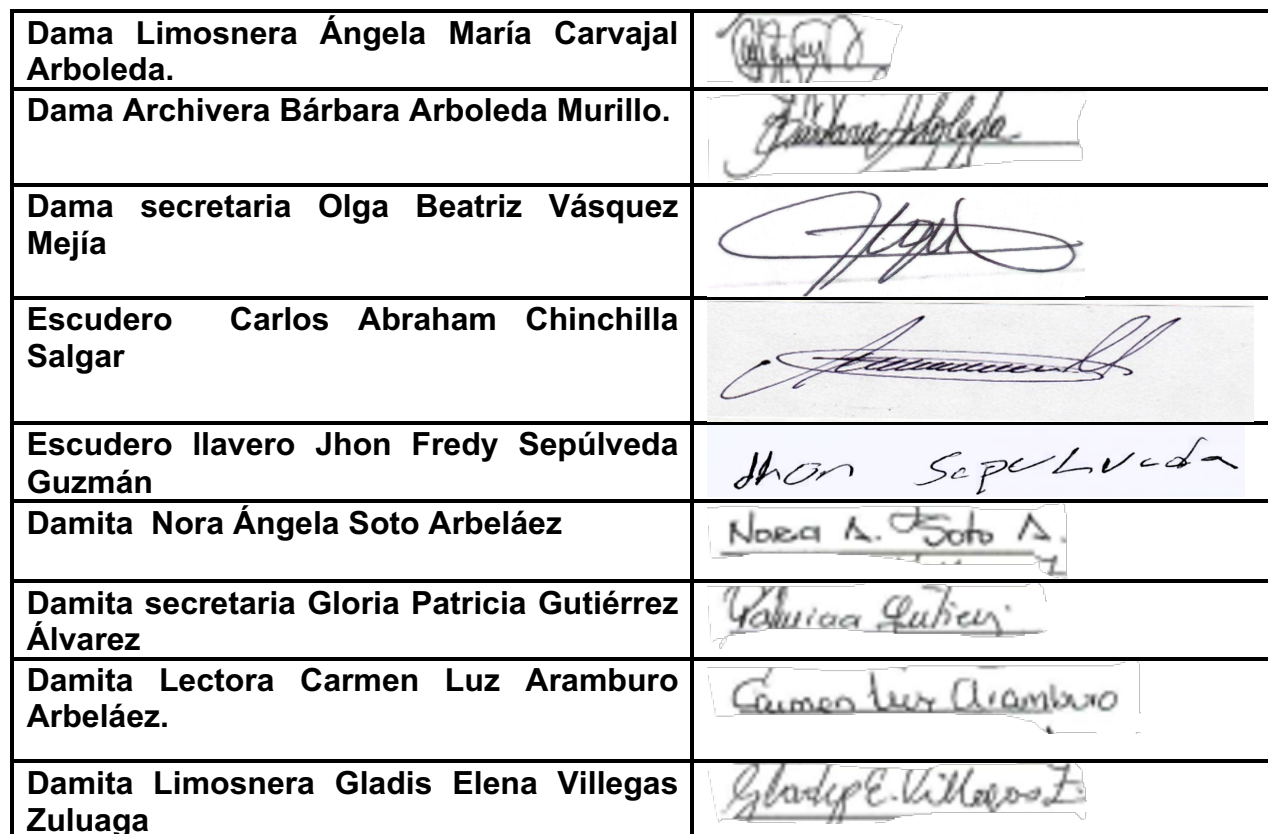 Dama Limosnera Ángela María Carvajal
Arboleda.
Dama Archivera Bárbara Arboleda Murillo.
Bárbara Arboleda
Dama secretaria Olga Beatriz Vásquez
Mejía
Escudero Carlos Abraham Chinchilla
Salgar
Escudero llavero Jhon Fredy Sepúlveda
Guzmán
Jhon Sepulveda
Damita Nora Ángela Soto Arbeláez
Nora A. Soto A.
Damita secretaria Gloria Patricia Gutiérrez
Álvarez
Damita Lectora Carmen Luz Aramburo
Arbeláez.
Carmen Luz Aramburo
Damita Limosnera Gladis Elena Villegas
Zuluaga
Gladys E. Villegas Z.